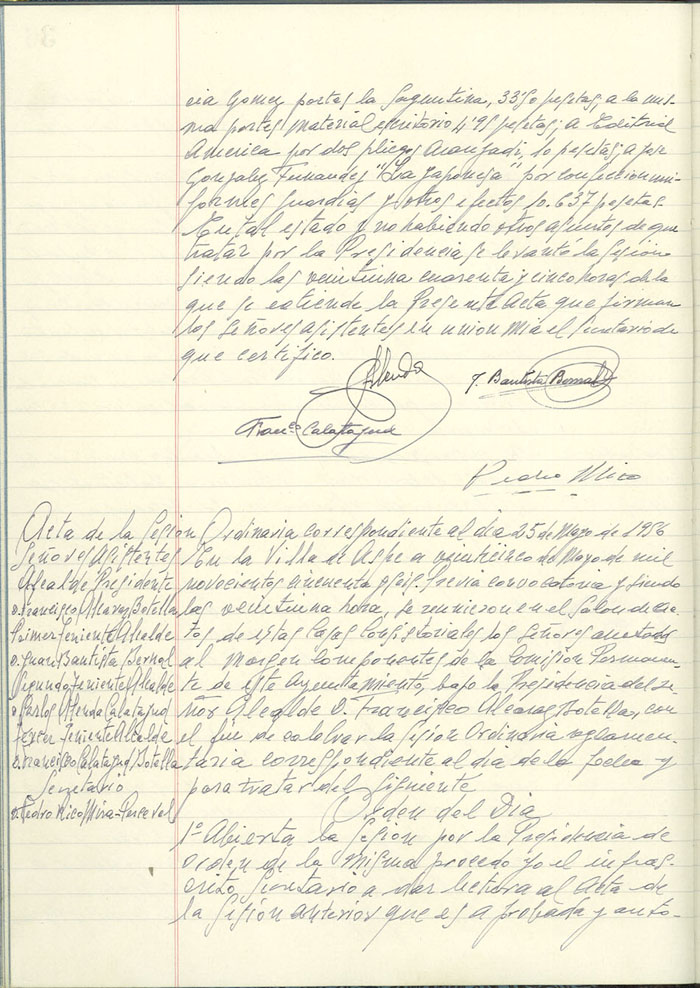 ria Gomez portes la Saguntina, 33'50 pesetas, a la mis-
ma portes material escritorio 4'95 pesetas; a Editorial
America por dos pliegos Aranzadi, 10 pesetas; a Jose
Gonzalez Fernandez "La Japonesa" por confeccion uni-
formes Guardias y otros efectos 10.637 pesetas.
En tal estado y no habiendo otros asuntos de que
tratar por la Presidencia se levantó la sesión
siendo las veintiuna cuarenta y cinco horas de la
que se extiende la Presente Acta que firman
los Señores asistentes en union mia el Secretario de
que certifico.
J. Bautista Bernal
Franco Calatayud
Pedro Mico
Acta de la Sesión Ordinaria correspondiente al dia 25 de Mayo de 1956
Señores Asistentes
Alcalde Presidente
D. Francisco Alcaraz Botella
Primer Teniente Alcalde
D. Juan Bautista Bernal
Segundo Teniente Alcalde
D. Carlos Alenda Calatayud
Tercer Teniente Alcalde
D. Francisco Calatayud Botella
Secretario
D. Pedro Mico Mira-Perceval
En la Villa de Aspe a veinticinco de Mayo de mil
novecientos cincuenta y seis, previa convocatoria y siendo
las veintiuna hora, se reunieron en el Salon de Ac-
tos de estas Casas Consistoriales los Señores anotados
al margen componentes de la Comision Permanen-
te de este Ayuntamiento, bajo la Presidencia del Se-
ñor Alcalde D. Francisco Alcaraz Botella, con
el fin de celebrar la Sesion Ordinaria reglamen-
taria correspondiente al dia de la fecha y
para tratar del siguiente
Orden del Dia
1º Abierta la Sesion por la Presidencia de
orden de la misma procedo yo el infras-
crito Secretario a dar lectura al Acta de
la Sesion anterior que es aprobada y auto-